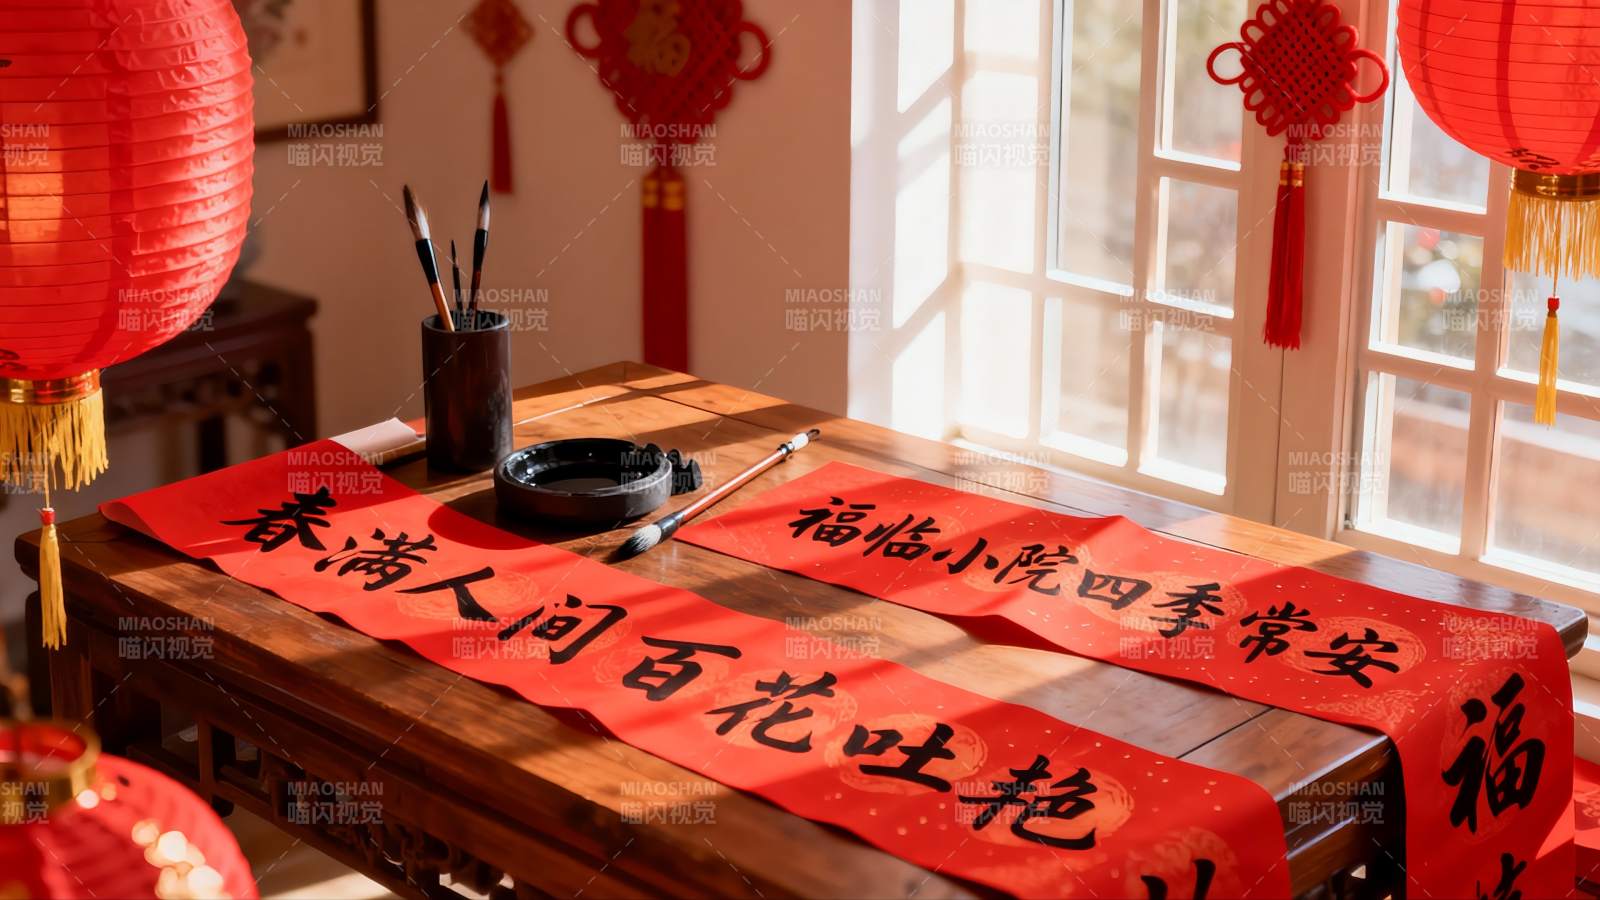 福
春满人间百花吐艳
福临小院四季常安
福
MIAOSHAN
喵闪视觉